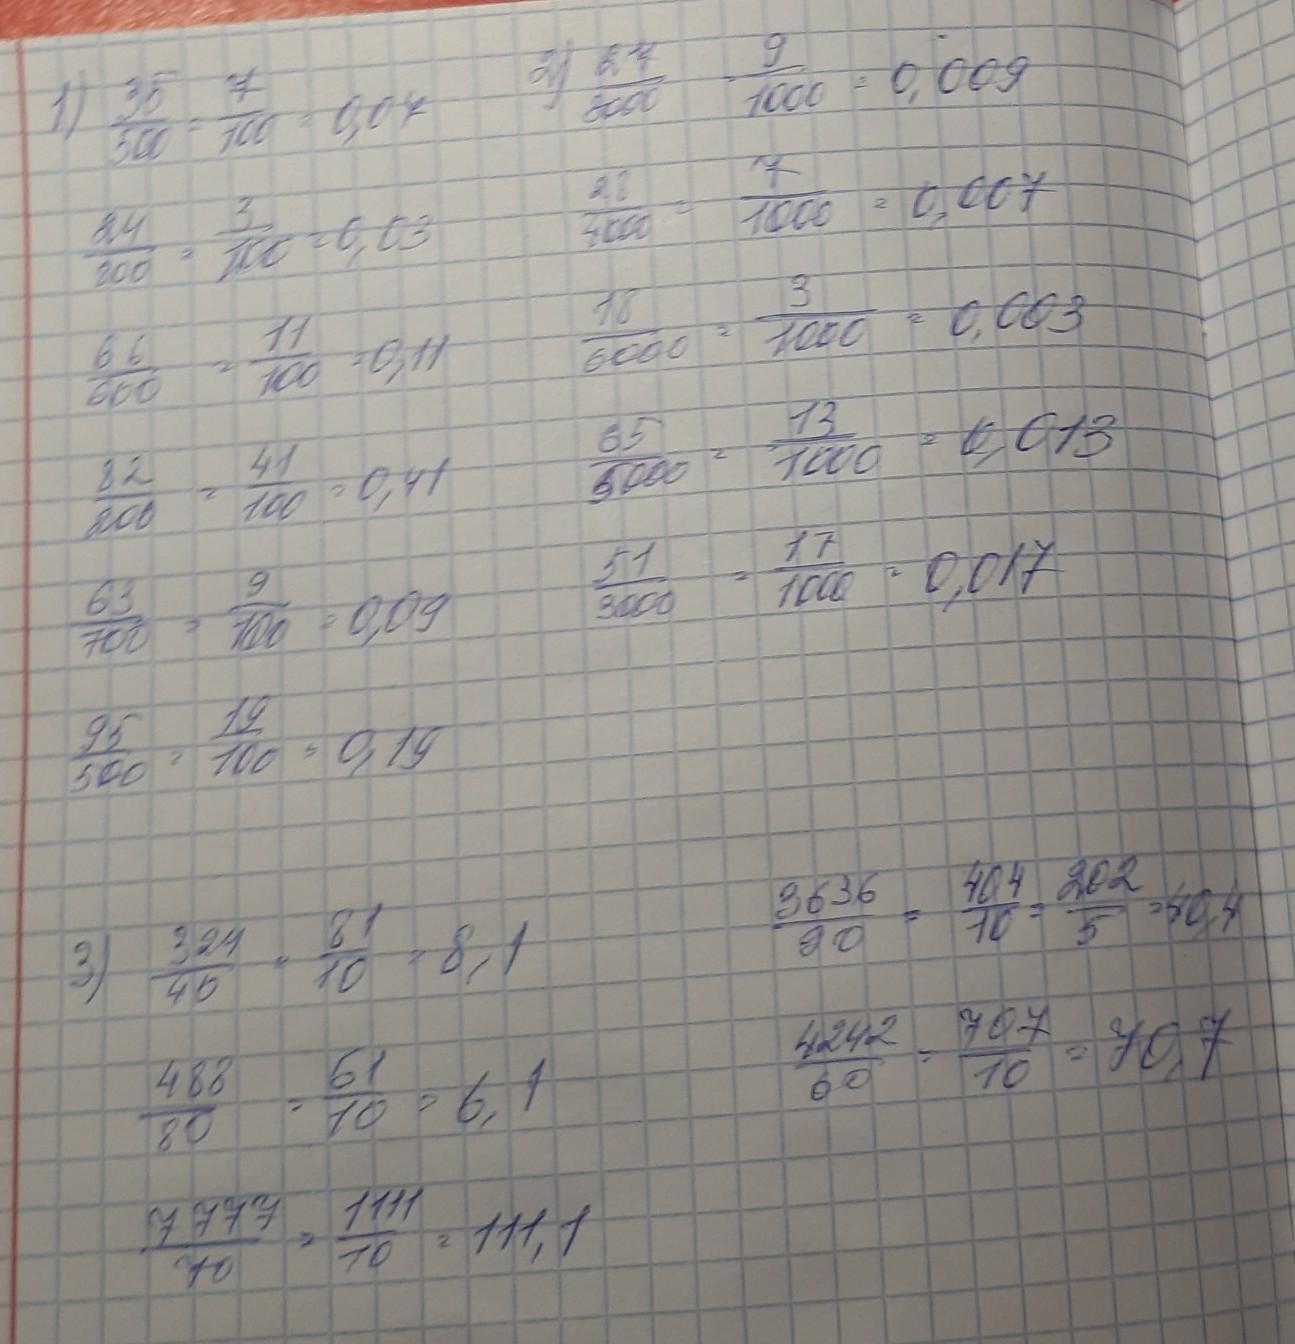 1) 35/500 = 7/100 = 0,07
24/800 = 3/100 = 0,03
66/600 = 11/100 = 0,11
82/200 = 41/100 = 0,41
63/700 = 9/100 = 0,09
95/500 = 19/100 = 0,19
2) 27/3000 = 9/1000 = 0,009
28/4000 = 7/1000 = 0,007
18/6000 = 3/1000 = 0,003
65/5000 = 13/1000 = 0,013
51/3000 = 17/1000 = 0,017
3) 324/40 = 81/10 = 8,1
488/80 = 61/10 = 6,1
7777/70 = 1111/10 = 111,1
3636/90 = 404/10 = 202/5 = 40,4
4242/60 = 707/10 = 70,7